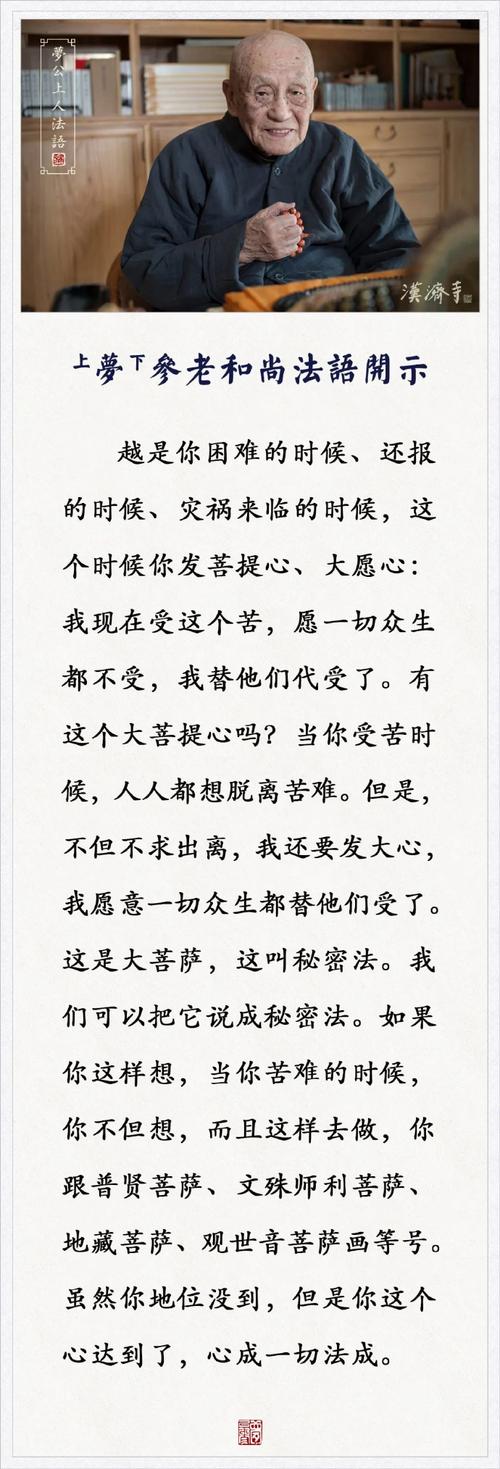 夢公上人法語
漢濟寺
上夢下參老和尚法語開示
越是你困难的时候、还报
的时候、灾祸来临的时候，这
个时候你发菩提心、大愿心：
我现在受这个苦，愿一切众生
都不受，我替他们代受了。有
这个大菩提心吗？当你受苦时
候，人人都想脱离苦难。但是，
不但不求出离，我还要发大心，
我愿意一切众生都替他们受了。
这是大菩萨，这叫秘密法。我
们可以把它说成秘密法。如果
你这样想，当你苦难的时候，
你不但想，而且这样去做，你
跟普贤菩萨、文殊师利菩萨、
地藏菩萨、观世音菩萨画等号。
虽然你地位没到，但是你这个
心达到了，心成一切法成。